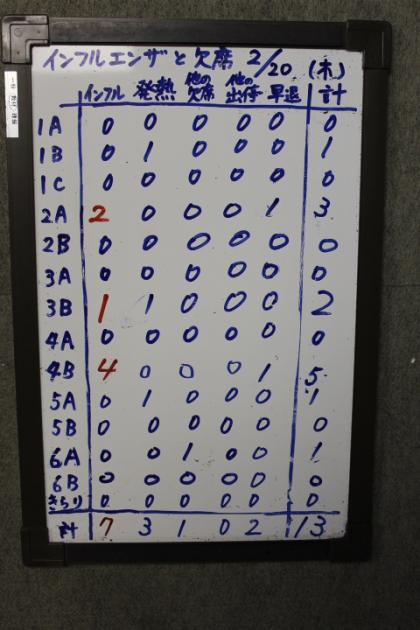 インフルエンザと欠席 2/20 (木)
インフル 発熱 他の欠席 他の出停 早退 計
1A 0 0 0 0 0 0
1B 0 1 0 0 0 1
1C 0 0 0 0 0 0
2A 2 0 0 0 1 3
2B 0 0 0 0 0 0
3A 0 0 0 0 0 0
3B 1 1 0 0 0 2
4A 0 0 0 0 0 0
4B 4 0 0 0 1 5
5A 0 1 0 0 0 1
5B 0 0 0 0 0 0
6A 0 0 1 0 0 1
6B 0 0 0 0 0 0
きらり 0 0 0 0 0 0
計 7 3 1 0 2 13